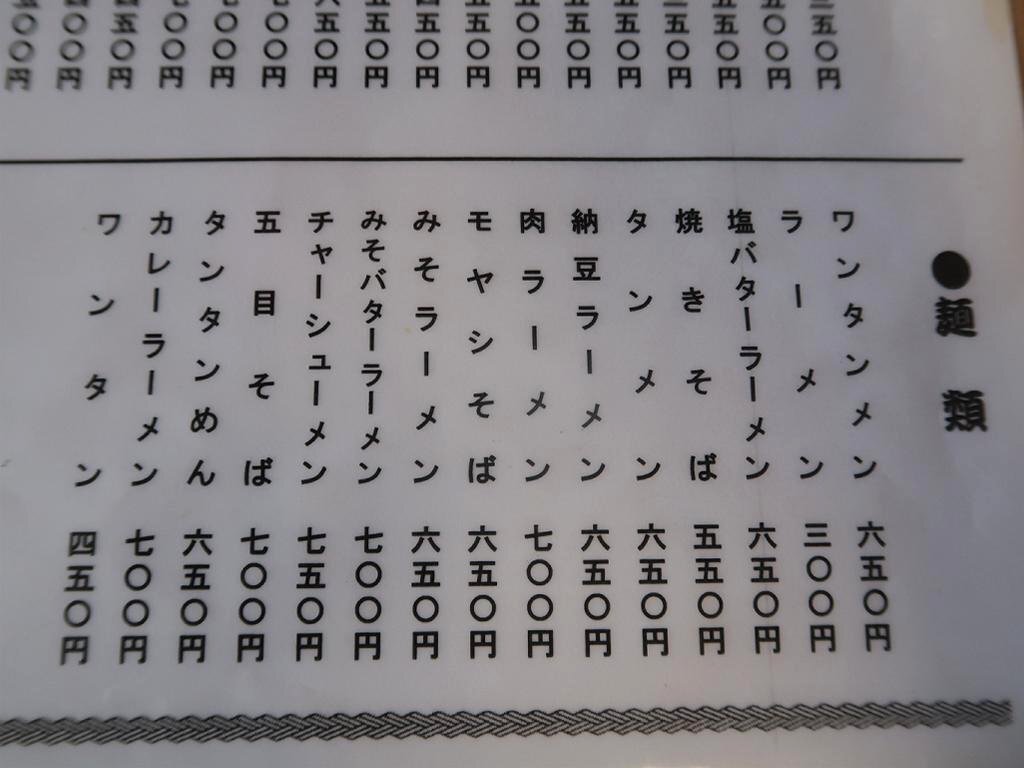 五〇円
〇〇円
五〇円
五〇円
五〇円
五〇円
〇〇円
五〇円
五〇円
五〇円
五〇円
〇〇円
〇〇円
〇〇円
五〇円
〇〇円
〇〇円
●麺類
ワンタンメン 六五〇円
ラーメン 三〇〇円
塩バターラーメン 六五〇円
焼きそば 五五〇円
タンメン 六五〇円
納豆ラーメン 六五〇円
肉ラーメン 七〇〇円
モヤシそば 六五〇円
みそラーメン 六五〇円
みそバターラーメン 七〇〇円
チャーシューメン 七五〇円
五目そば 七〇〇円
タンタンめん 六五〇円
カレーラーメン 七〇〇円
ワンタン 四五〇円